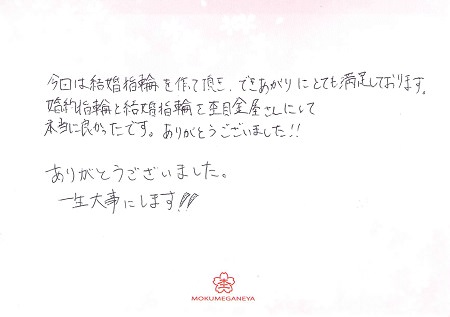 今回は結婚指輪を作って頂き、できあがりにとても満足しております。
婚約指輪と結婚指輪を杢目金屋さんにして
本当に良かったです。ありがとうございました!!
ありがとうございました。
一生大事にします!!
杢
MOKUMEGANEYA